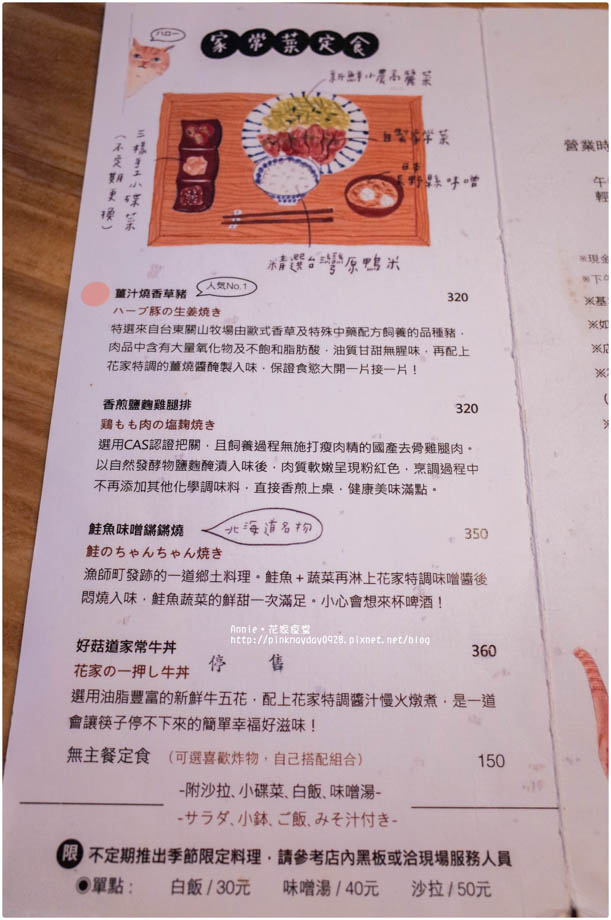 ハロー
家常菜定食
新鮮小農高麗菜
自製家常菜
日本
長野縣味噌
三樣手工小碟菜
(不定期更換)
精選台灣原鴨米
薑汁燒香草豬
人気No.1
320
ハーブ豚の生姜焼き
特選來自台東關山牧場由歐式香草及特殊中藥配方飼養的品種豬，
肉品中含有大量氧化物及不飽和脂肪酸，油質甘甜無腥味，再配上
花家特調的薑燒醬醃製入味，保證食慾大開一片接一片！
香煎鹽麴雞腿排
320
鶏もも肉の塩麹焼き
選用CAS認證把關，且飼養過程無施打瘦肉精的國產去骨雞腿肉。
以自然發酵物鹽麴醃漬入味後，肉質軟嫩呈現粉紅色，烹調過程中
不再添加其他化學調味料，直接香煎上桌，健康美味滿點。
鮭魚味噌鏘鏘燒
北海道名物
350
鮭のちゃんちゃん焼き
漁師町發跡的一道鄉土料理。鮭魚＋蔬菜再淋上花家特調味噌醬後
悶燒入味，鮭魚蔬菜的鮮甜一次滿足。小心會想來杯啤酒！
Annie。花嫁瘦堂
http://pinkmayday0928.pixnet.net/blog
好菇道家常牛丼
360
花家の一押し牛丼
停 售
選用油脂豐富的新鮮牛五花，配上花家特調醬汁慢火燉煮，是一道
會讓筷子停不下來的簡單幸福好滋味！
無主餐定食 (可選喜歡炸物，自己搭配組合) 150
-附沙拉、小碟菜、白飯、味噌湯-
-サラダ、小鉢、ご飯、みそ汁付き-
限 不定期推出季節限定料理，請參考店內黑板或洽現場服務人員
◉單點： 白飯/30元 味噌湯/40元 沙拉/50元
營業時
午
輕
※現金
※下
※基
※如
※店